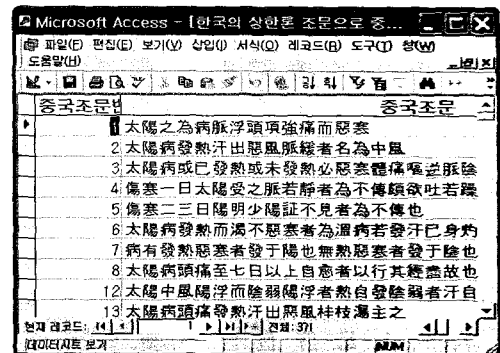 Microsoft Access - [한국의 상한론 조문으로 중...
파일(F) 편집(E) 보기(V) 삽입(I) 서식(O) 레코드(R) 도구(T) 창(W)
도움말(H)
중국조문번 중국조문
1 太陽之為病脈浮頭項強痛而惡寒
2 太陽病發熱汗出惡風脈緩者名為中風
3 太陽病或已發熱或未發熱必惡寒體痛嘔逆脈陰
4 傷寒一日太陽受之脈若靜者為不傳頗欲吐若躁
5 傷寒二三日陽明少陽証不見者為不傳也
6 太陽病發熱而渴不惡寒者為溫病若發汗已身灼
7 病有發熱惡寒者發于陽也無熱惡寒者發于陰也
8 太陽病頭痛至七日以上自愈者以行其經盡故也
12 太陽中風陽浮而陰弱陽浮者熱自發陰弱者汗自
13 太陽病頭痛發熱汗出惡風桂枝湯主之
현재 레코드: 1 전체: 371
데이터시트 보기 NUM